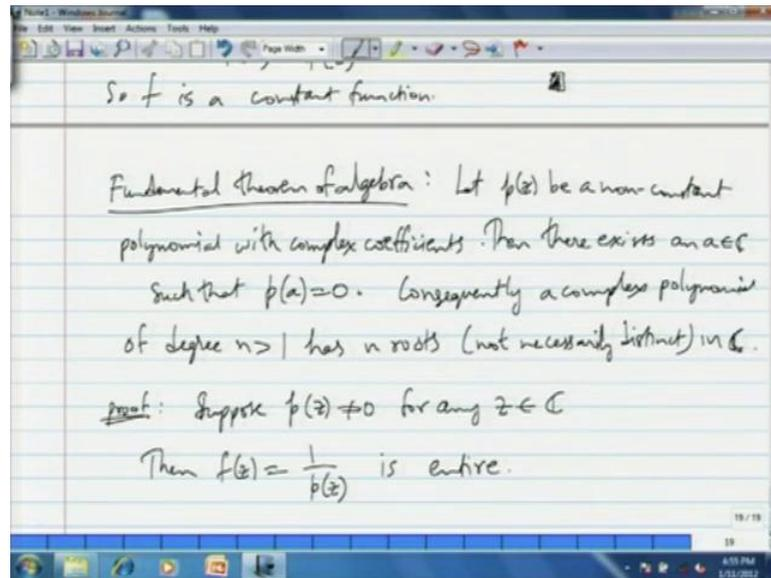 Note1 - Windows Journal
File Edit View Insert Actions Tools Help
Page Width
So f is a constant function.
Fundamental theorem of algebra : Let p(z) be a non-constant
polynomial with complex coefficients. Then there exists an a∈ℂ
such that p(a)=0. Consequently a complex polynomial
of degree n>1 has n roots (not necessarily distinct) in ℂ.
proof: Suppose p(z)≠0 for any z∈ℂ
Then f(z) = 1/p(z) is entire.
19 / 19
19
4:55 PM
1/11/2012